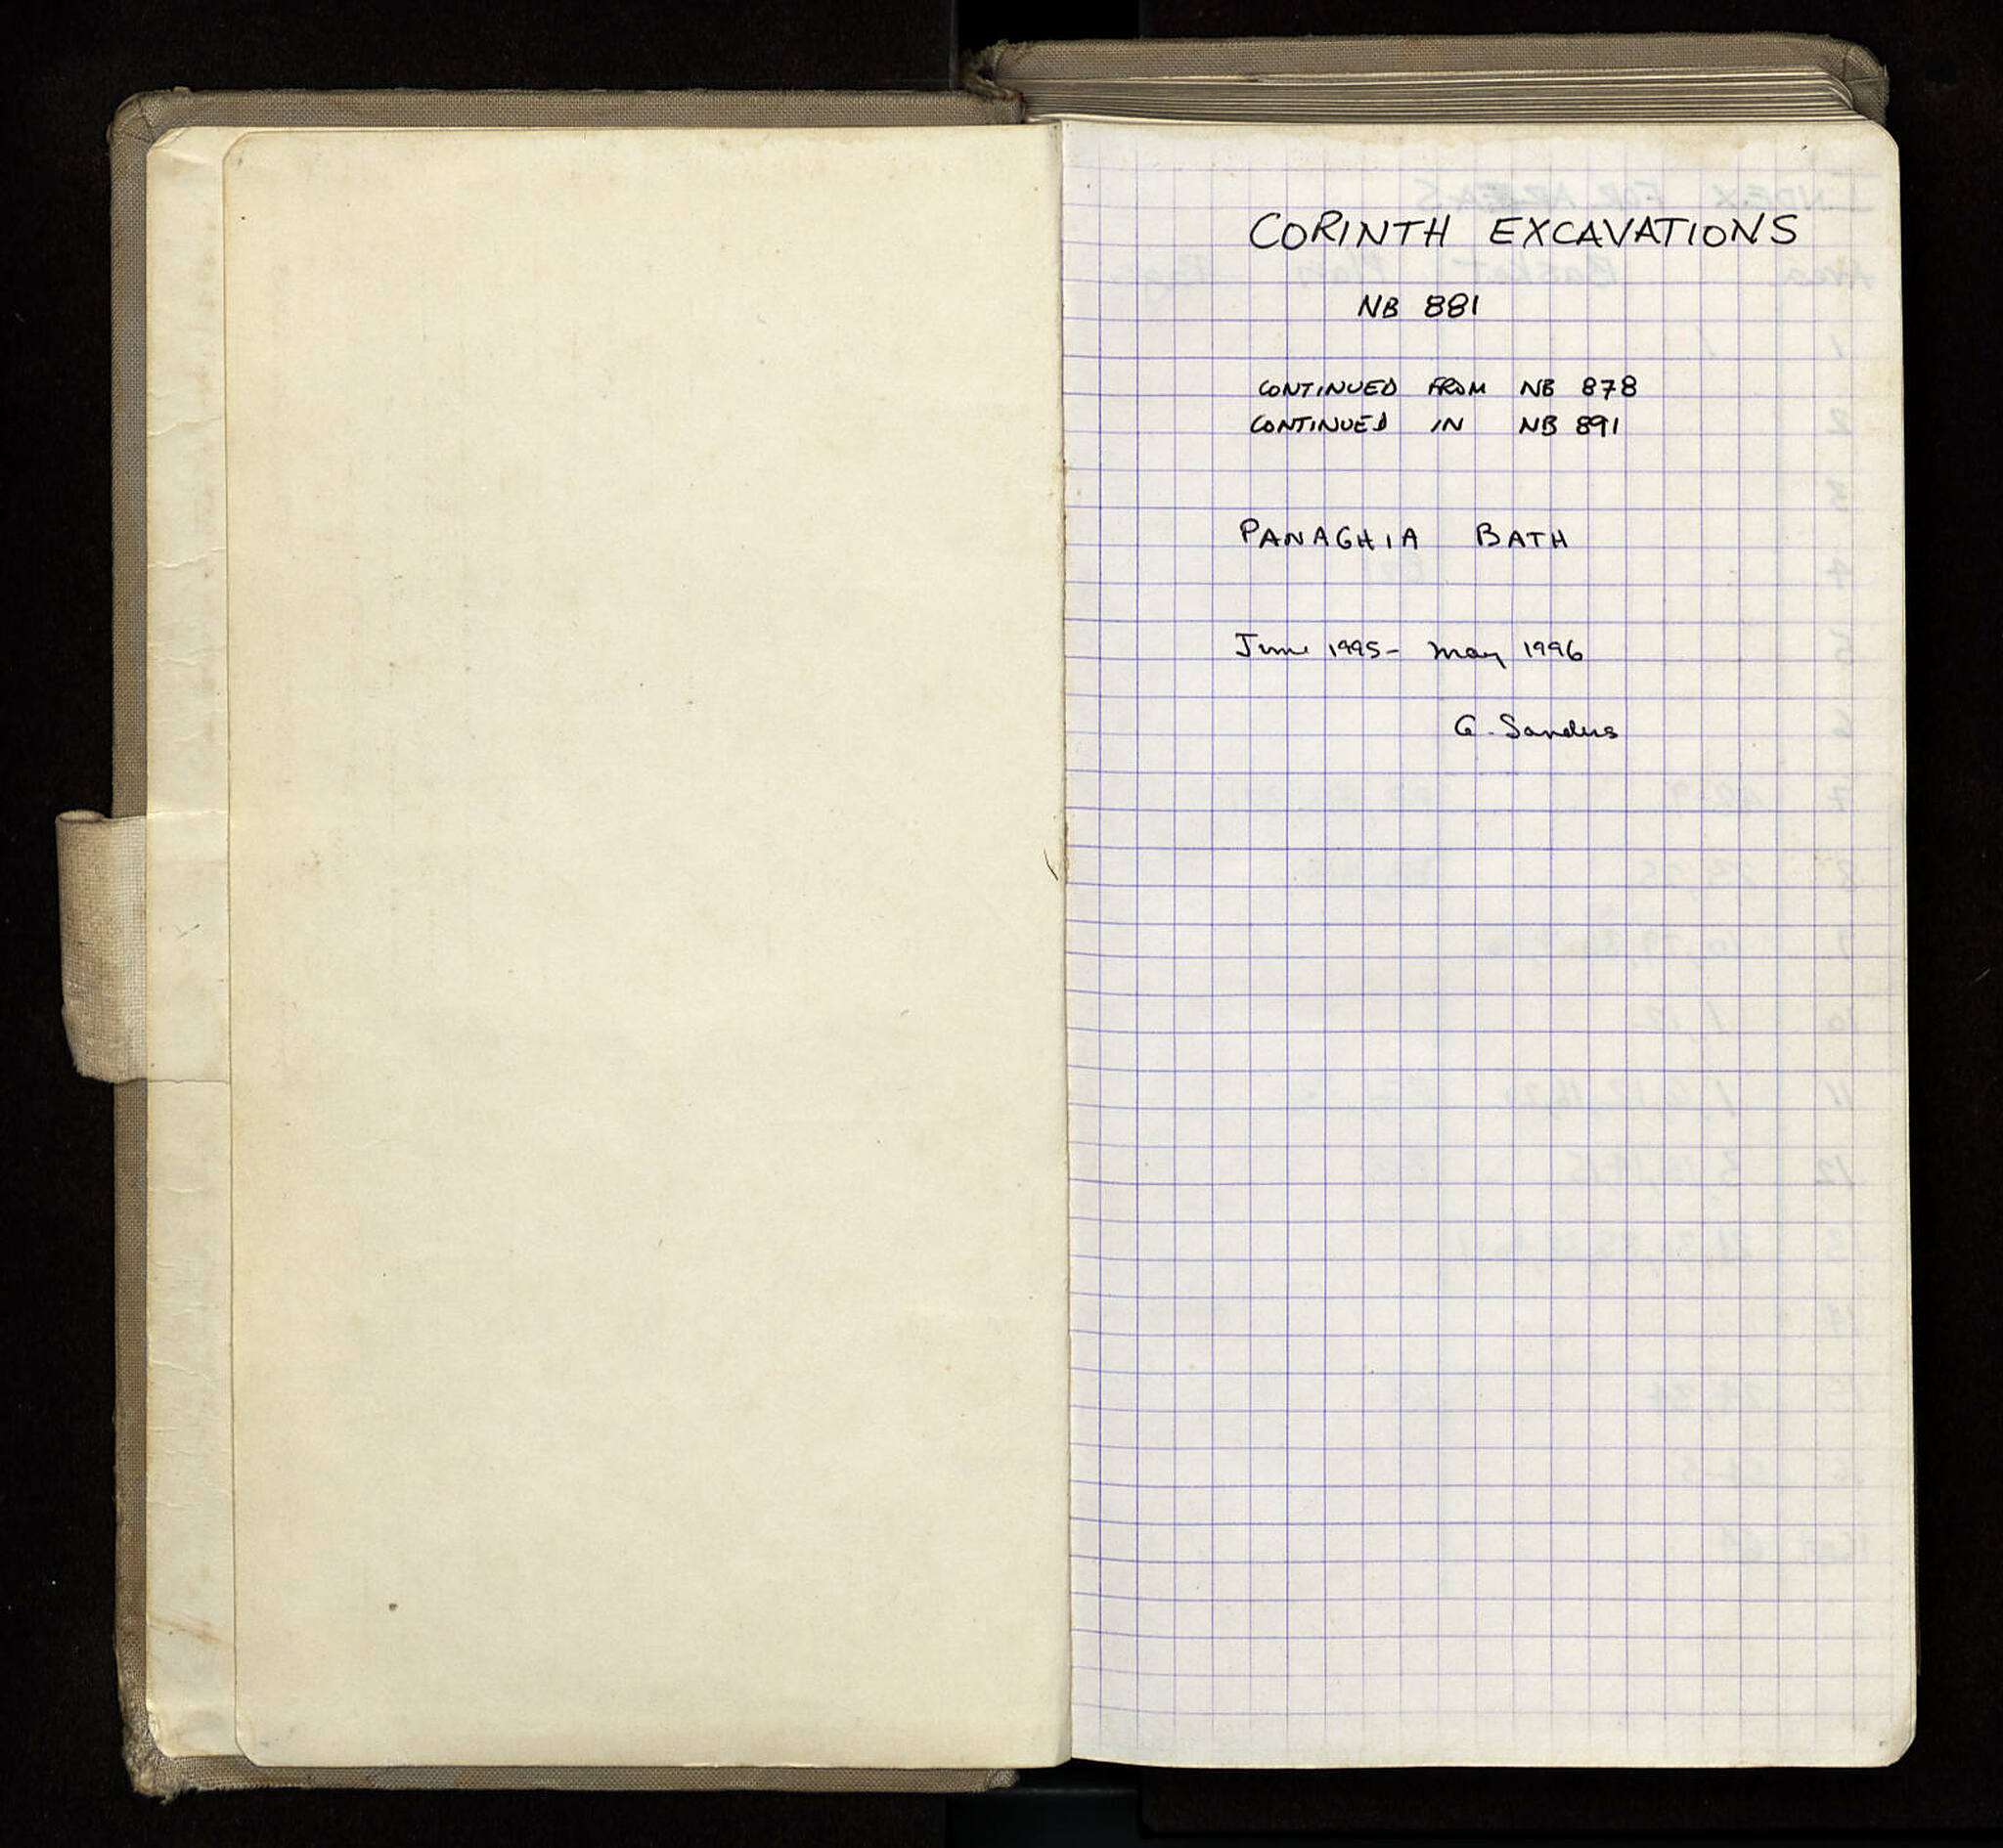 CORINTH EXCAVATIONS
NB 881
CONTINUED FROM NB 878
CONTINUED IN NB 891
PANAGHIA BATH
June 1995- May 1996
G. Sanders